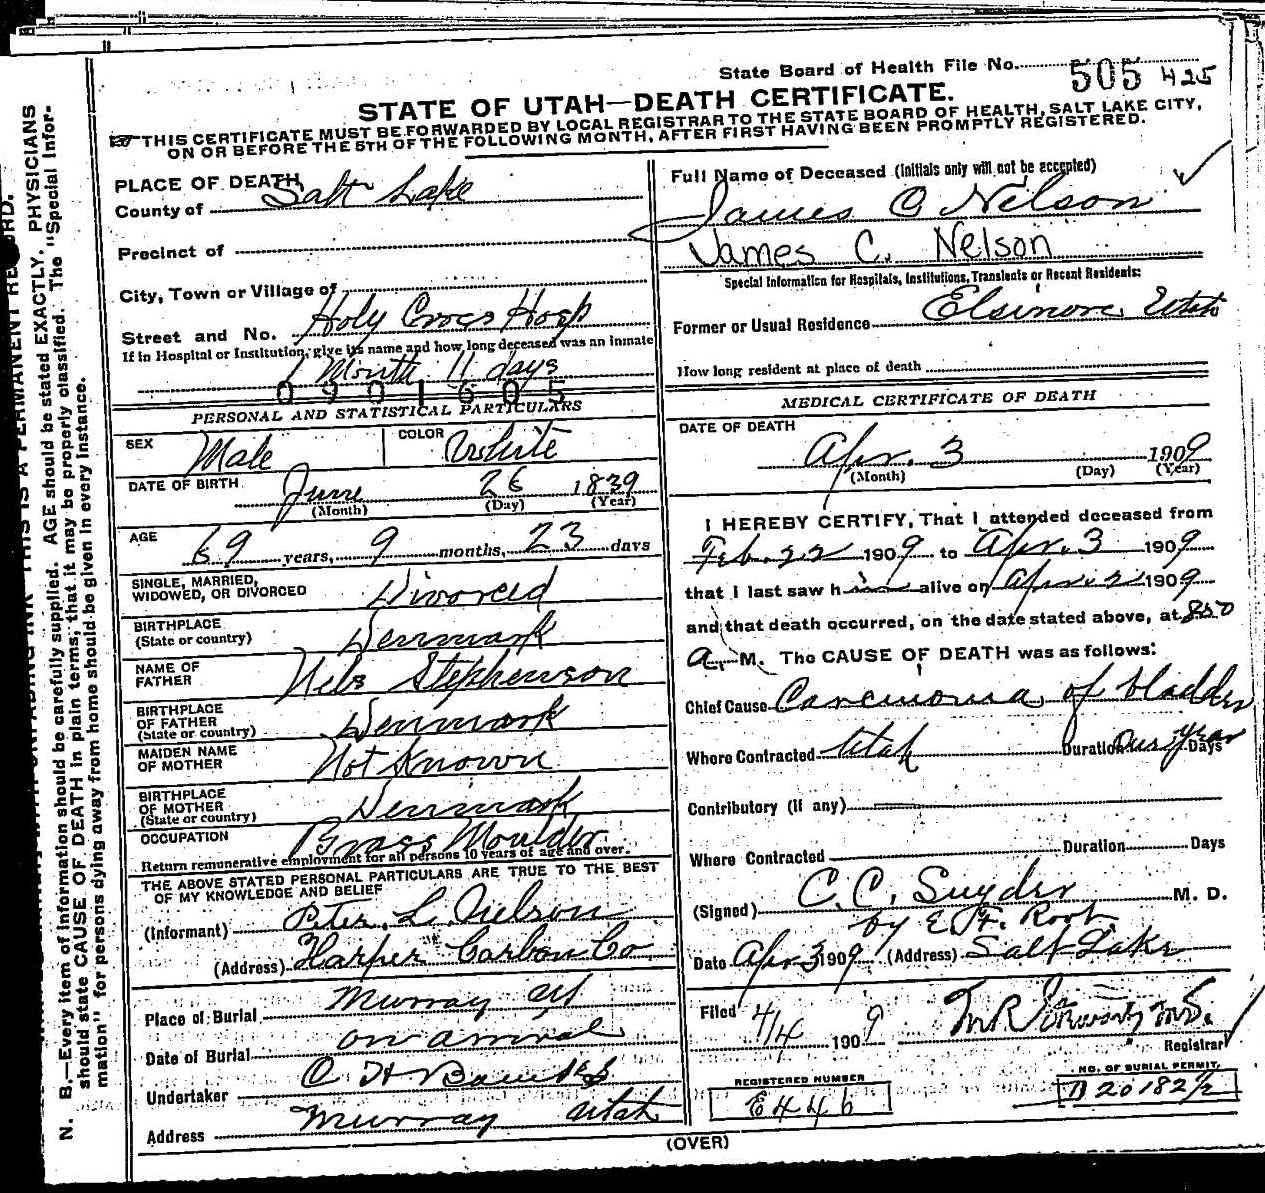 State Board of Health File No. 505 425
STATE OF UTAH—DEATH CERTIFICATE.
THIS CERTIFICATE MUST BE FORWARDED BY LOCAL REGISTRAR TO THE STATE BOARD OF HEALTH, SALT LAKE CITY,
ON OR BEFORE THE 5TH OF THE FOLLOWING MONTH, AFTER FIRST HAVING BEEN PROMPTLY REGISTERED.
PLACE OF DEATH
County of Salt Lake
Precinct of
City, Town or Village of
Street and No. Holy Cross Hosp
If in Hospital or Institution, give its name and how long deceased was an inmate
1 Month 11 days
0901605
PERSONAL AND STATISTICAL PARTICULARS
SEX Male COLOR White
DATE OF BIRTH June 26 1839
(Month) (Day) (Year)
AGE 69 years, 9 months, 23 days
SINGLE, MARRIED,
WIDOWED, OR DIVORCED Divorced
BIRTHPLACE
(State or country) Denmark
NAME OF
FATHER Nels Stephenson
BIRTHPLACE
OF FATHER
(State or country) Denmark
MAIDEN NAME
OF MOTHER Not Known
BIRTHPLACE
OF MOTHER
(State or country) Denmark
OCCUPATION Brass Moulder
Return remunerative employment for all persons 10 years of age and over.
THE ABOVE STATED PERSONAL PARTICULARS ARE TRUE TO THE BEST
OF MY KNOWLEDGE AND BELIEF
(Informant) Peter L. Nelson
(Address) Harper Carbon Co
Place of Burial Murray Ut
Date of Burial on arrival
Undertaker O H
Address Murray Utah
Full Name of Deceased (Initials only will not be accepted)
James C Nelson
James C. Nelson
Special Information for Hospitals, Institutions, Transients or Recent Residents:
Former or Usual Residence Elsinore Utah
How long resident at place of death
MEDICAL CERTIFICATE OF DEATH
DATE OF DEATH
Apr. 3 1909
(Month) (Day) (Year)
I HEREBY CERTIFY, That I attended deceased from
Feb. 22 1909 to Apr. 3 1909
that I last saw him alive on Apr. 2 1909
and that death occurred, on the date stated above, at 850
a. M. The CAUSE OF DEATH was as follows:
Chief Cause Carcinoma of bladder
Where Contracted Utah Duration One year Days
Contributory (if any)
Where Contracted Duration Days
(Signed) C. C. Snyder M. D.
by E. F. Root
Date Apr 3 1909 (Address) Salt Lake
Filed 4/4 1909
Registrar
REGISTERED NUMBER
E446
NO. OF BURIAL PERMIT
B 20182 1/2
(OVER)
N. B.—Every item of information should be carefully supplied. AGE should be stated EXACTLY. PHYSICIANS
should state CAUSE OF DEATH in plain terms, that it may be properly classified. The "Special Infor-
mation" for persons dying away from home should be given in every instance.